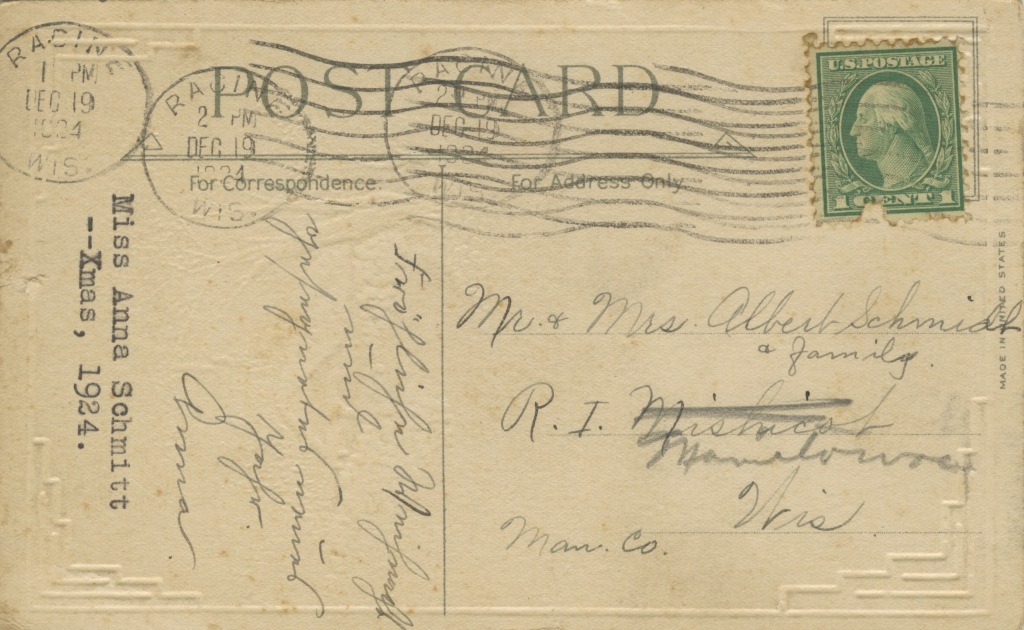 RACINE
1 PM
DEC 19
1924
WIS.
RACINE
2 PM
DEC 19
1924
WIS.
RACINE
2 PM
DEC 19
1924
WIS.
POST CARD
For Correspondence.
For Address Only.
U.S. POSTAGE
1 CENT 1
MADE IN UNITED STATES
Mr. & Mrs. Albert Schmidt
& family.
R. I. Mishicot
Manitowoc
Wis
Man. Co.
Fröhliche Weihnacht
und
Neujahr
Anna
Miss Anna Schmitt
--Xmas, 1924.